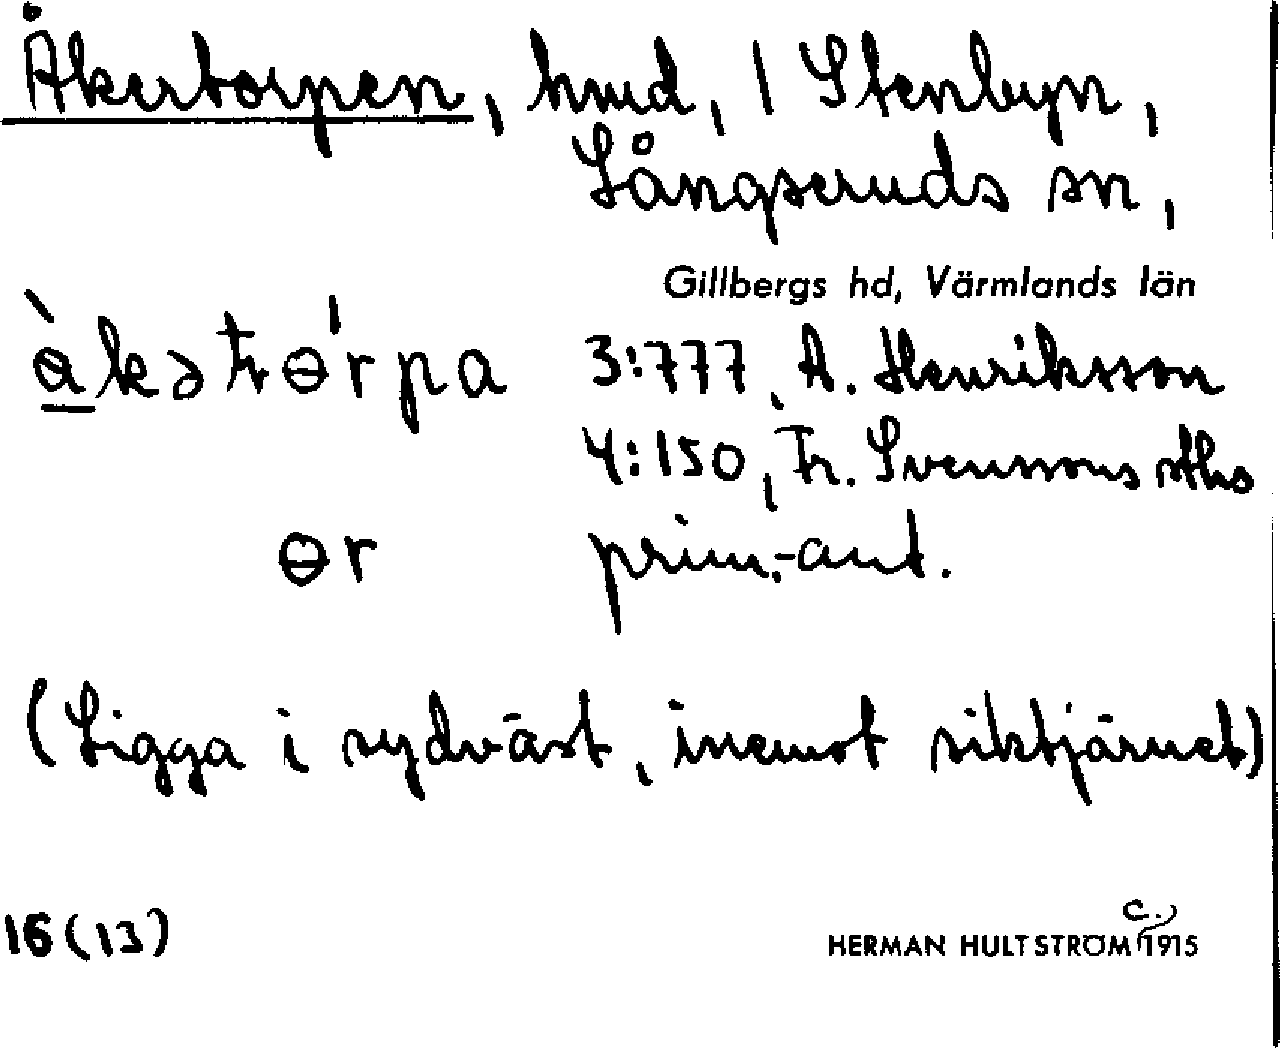 Åkertorpen, hmd, 1 Stenbyn,
Långseruds sn,
Gillbergs hd, Värmlands län
3:777, A. Henriksson
4:150, Fr. Svenssons sths
ɵr prim.-ant.
(Ligga i sydväst, inemot siktjärnet)
16(13)
HERMAN HULTSTRÖM c. 1915